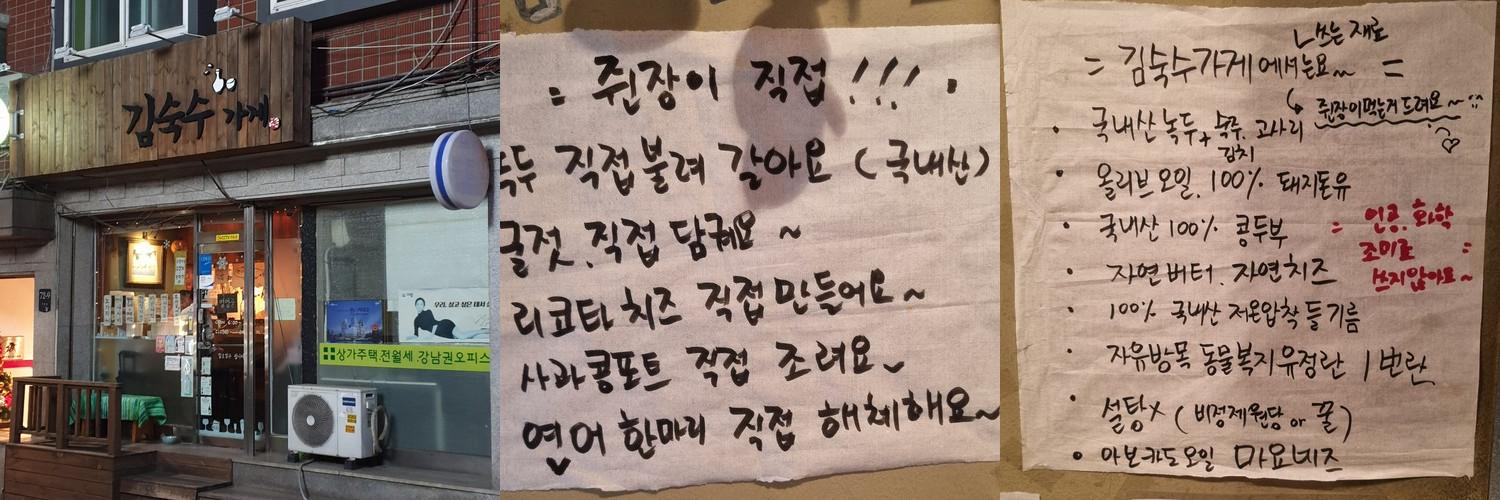 김숙수 가게
상가주택.전월세.강남권오피스
쥔장이 직접!!!
직접불려 갈아요 (국내산)
직접 담궈요 ~
리코타 치즈 직접 만들어요~
사과콩포트 직접 조려요~
연어 한마리 직접 해체해요~
쓰는 재료
= 김숙수가게에서는요~ =
쥔장이먹는거드려요~
국내산 녹두+숙주 고사리
김치
올리브오일. 100% 돼지돈유
국내산 100% 콩두부
인공.화학
조미료
쓰지않아요~
자연버터. 자연치즈
100% 국내산 저온압착 들기름
자유방목 동물복지유정란 1번란
설탕X (비정제원당 or 꿀)
아보카도오일 마요네즈